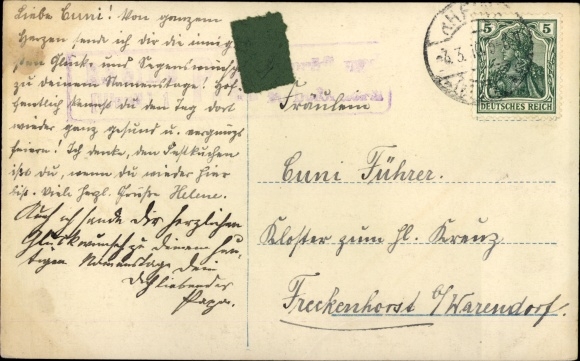 Liebe Cuni! Von ganzem
Herzen sende ich dir die innig
sten Glück- und Segenswünsche
zu deinem Namenstage. Hof
fentlich kannst du den Tag dort
wieder ganz gesund u. vergnügt
feiern! Ich denke, den Festkuchen
ißt du, wenn du wieder hier
bist. Viele herzl. Grüße Helene.
Auch ich sende dir herzlichen
Glückwunsch zu deinem heu-
tigen Namenstage. Dein
dich liebender
Papa.
5 5
DEUTSCHES REICH
Fräulein
Cuni Führer.
Kloster zum hl. Kreuz
Freckenhorst b/Warendorf.